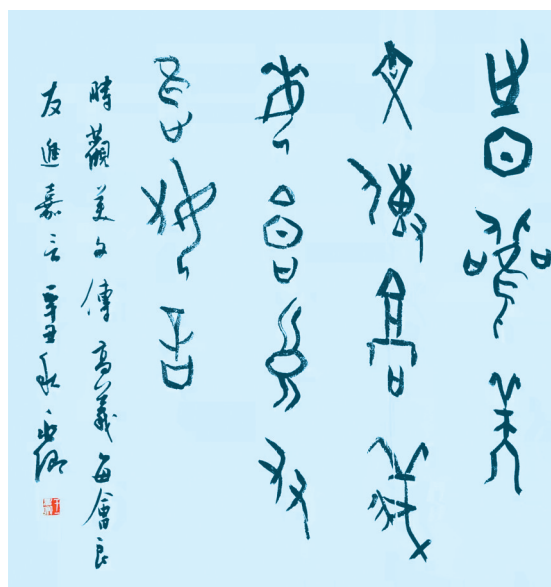 時觀美
文傳高義
每會良友
進嘉言
時觀美文傳高義每會良
友進嘉言辛丑秋